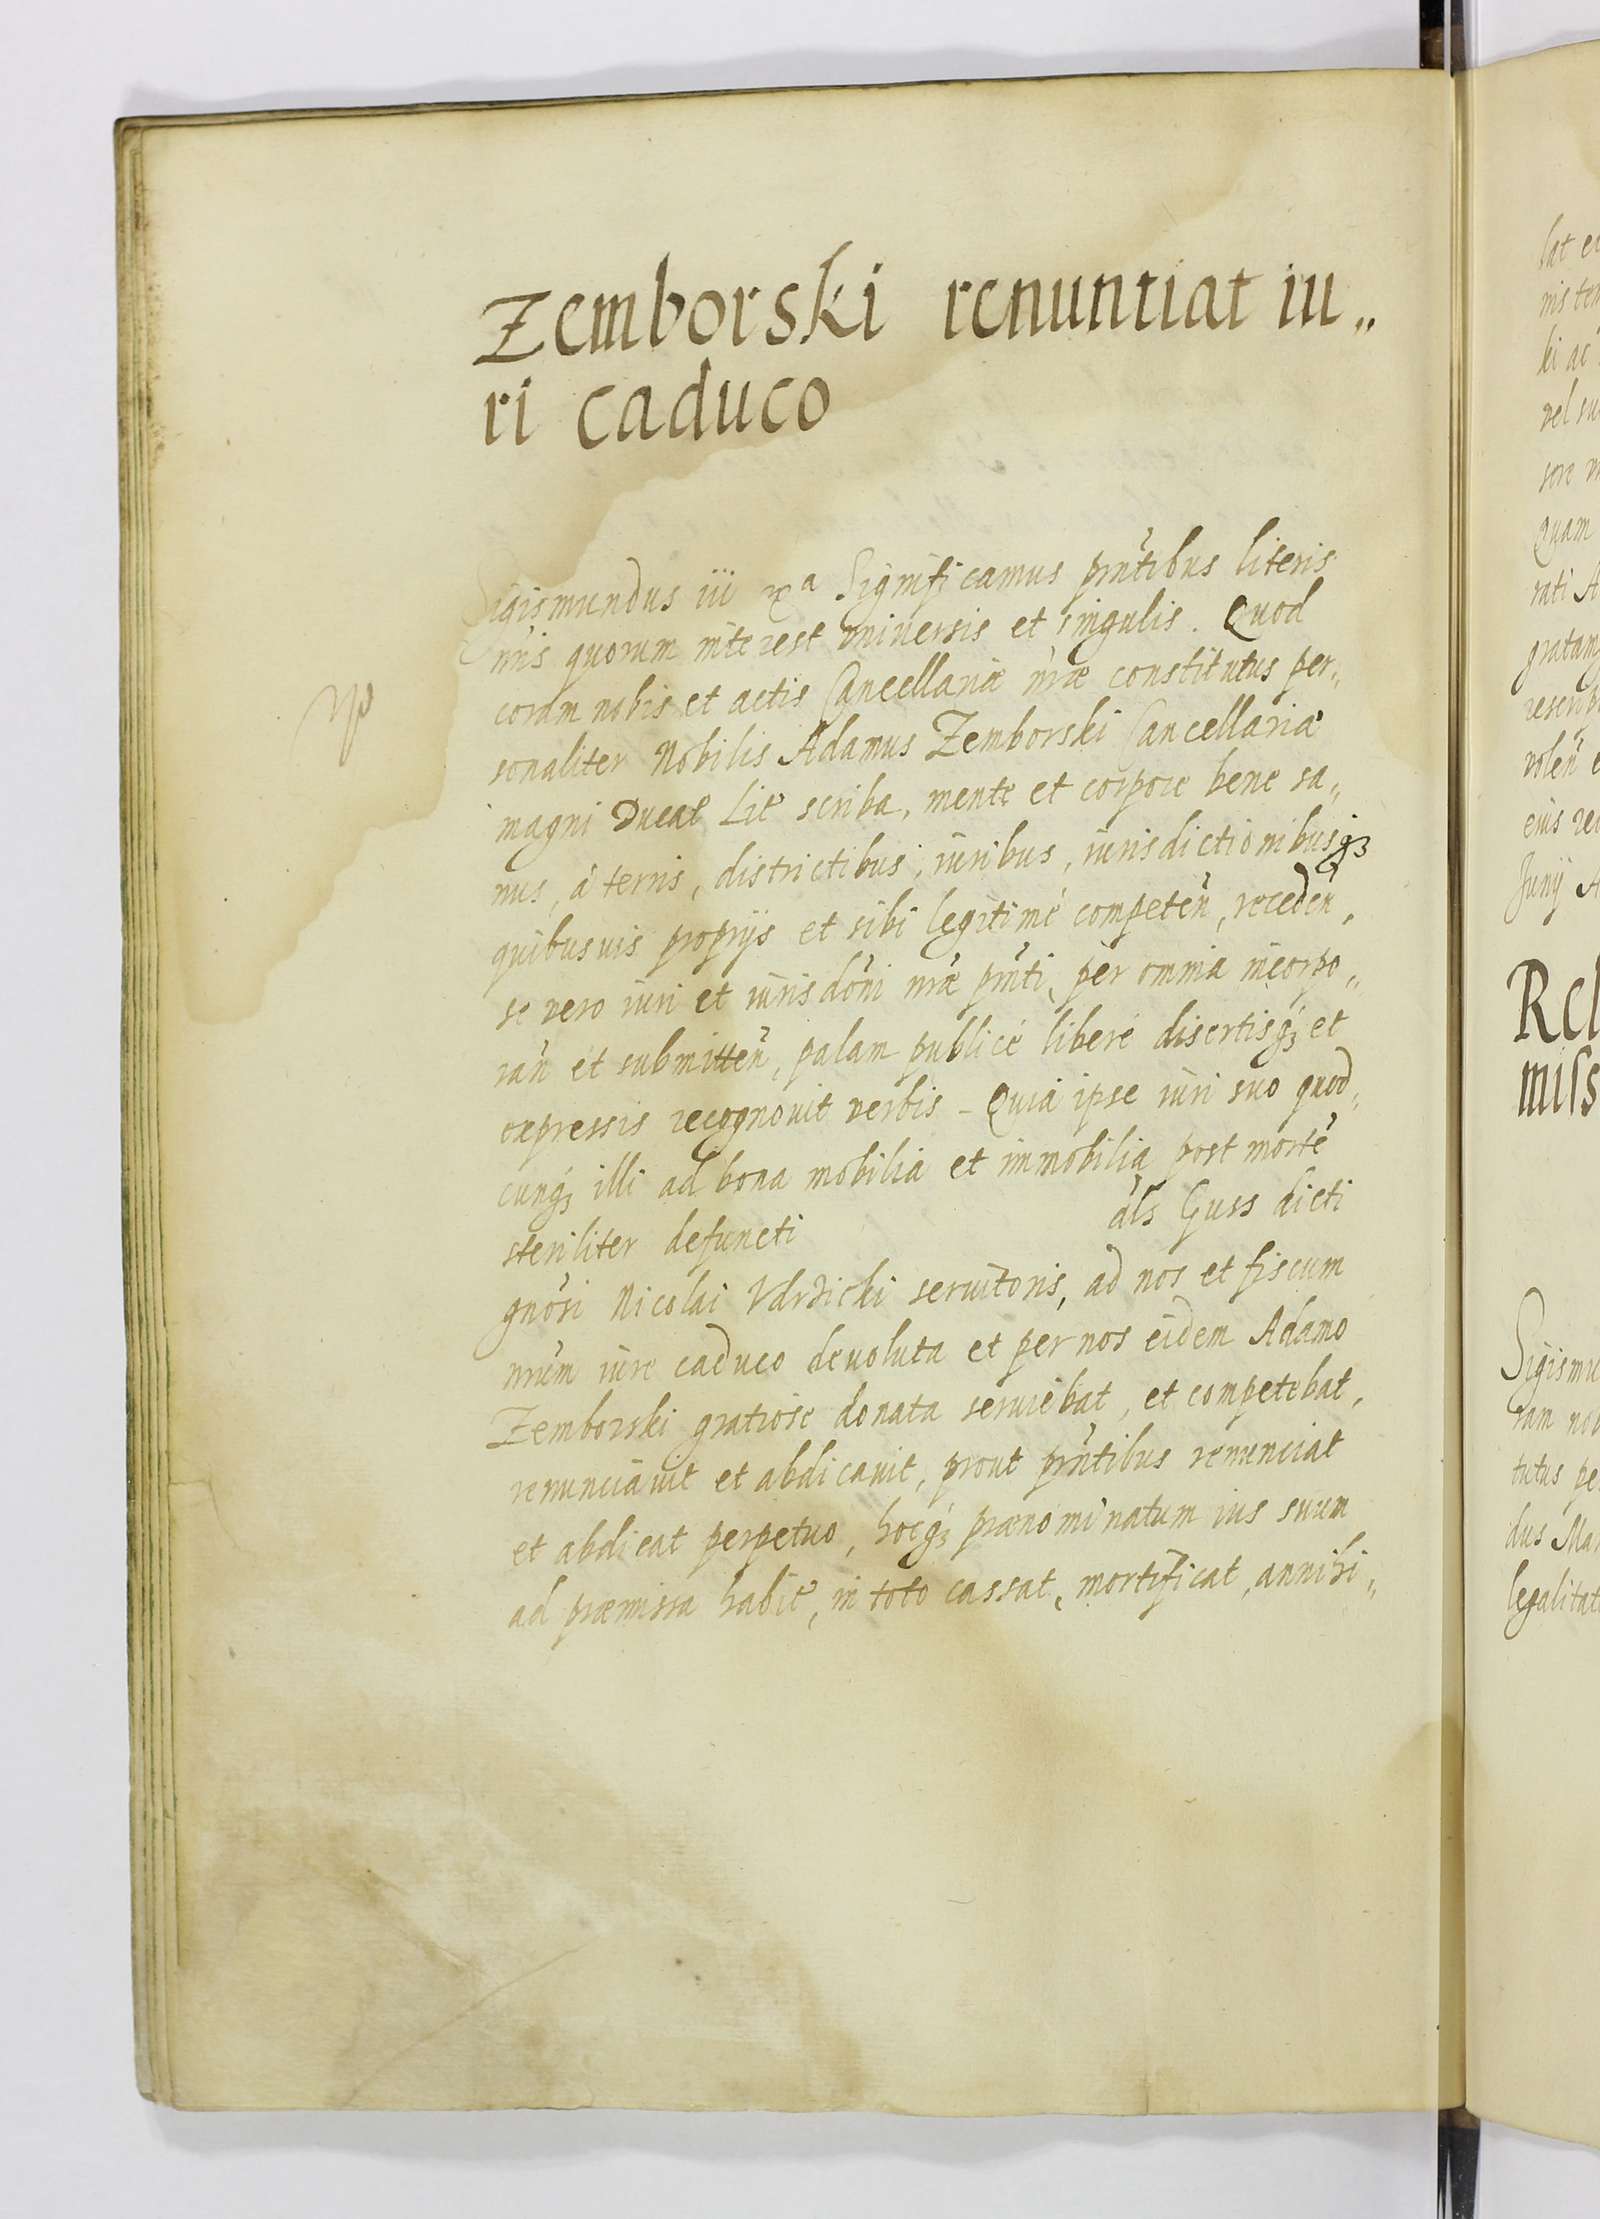 Zemborski renuntiat iu„
ri caduco
Sigismundus iii Significamus pr̃ntibus literis
nr̃is quorum interest vniuersis et singulis. Quod
coram nobis et actis Cancellariæ nr̃æ constitutus per„
sonaliter Nobilis Adamus Zemborski Cancellariæ
magni Ducat Lit scriba, mente et corpore bene sa„
nus, à terris, districtibus, iuribus, iurisdictionibusq́ꝫ
quibusuis proprijs et sibi legitimè competeñ, recedeñ,
se vero iuri et iurisdõni nr̃æ pr̃nti, per omnia incorpo„
rañ et submitteñ, palam publicè liberè disertisq́ꝫ et
expressis recognouit verbis - Quia ipse iuri suo quod„
cunq́ꝫ illi ad bona mobilia et immobilia post mortẽ
steriliter defuncti als̃ Guss dicti
gñosi Nicolai seruitoris, ad nos et fiscum
nr̃um iure caduco deuoluta et per nos eidem Adamo
Zemborski gratiose donata seruiebat, et competebat,
renunciauit et abdicauit, prout pr̃ntibus renunciat
et abdicat perpetuo, hocq́ꝫ prænominatum ius suum
ad præmissa habit, in toto cassat, mortificat, annihi„
lat
nis
ki ac
vel
sore
Quam
rati
gratam
volen̄
eius
Junij
Rel
miss
Sigismu
ram
tutus
dus
legalitat